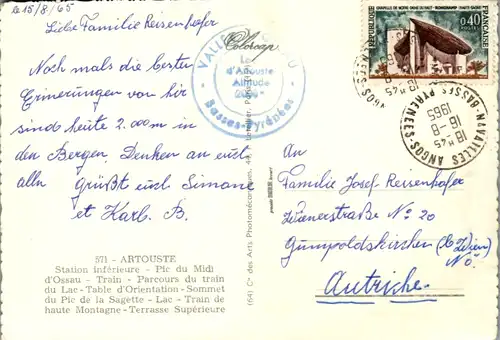 le 15/8/65
Liebe Familie Reisenhofer
Noch mals die besten
Erinerungen von hir
sind heute 2.000 m in
den Bergen. Denken an eust
alln Grüßt eusl Simone
et Karl. B.
571 - ARTOUSTE
Station inférieure - Pic du Midi
d'Ossau - Train - Parcours du train
du Lac - Table d'Orientation - Sommet
du Pic de la Sagette - Lac - Train de
haute Montagne - Terrasse Supérieure
Colorcap
VALLÉE
d'Artouste
Altitude
Basses-Pyrénées
(64) Cie des Arts Photomécaniques
RÉPUBLIQUE FRANÇAISE
CHAPELLE DE NOTRE-DAME DU HAUT - RONCHAMP (HAUTE-SAÔNE)
0,40
POSTES
NAVAILLES ANGOS
BASSES PYRENEES
18 H 45
16-8
1965
An
Familie Josef Reisenhofer
Wienerstraße No 20
Gumpoldskirchen (b/Wien)
NÖ.
Autriche